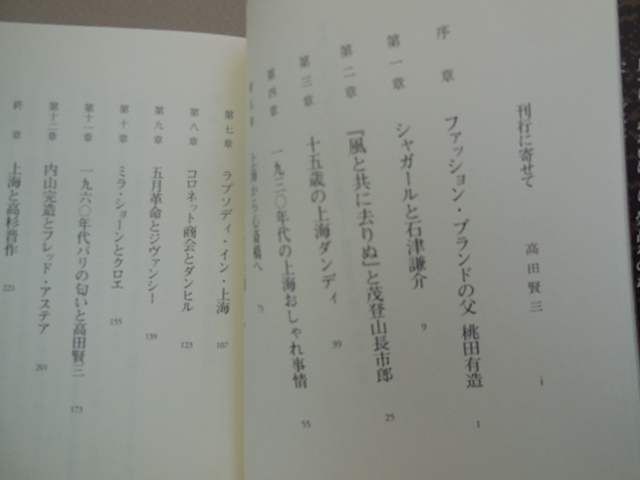 刊行に寄せて 高田賢三 i
序章 ファッション・ブランドの父 桃田有造 1
第一章 シャガールと石津謙介 9
第二章 『風と共に去りぬ』と茂登山長市郎 25
第三章 十五歳の上海ダンディ 39
第四章 一九三〇年代の上海おしゃれ事情 55
第五章 上海から心斎橋へ 71
第七章 ラプソディ・イン・上海 107
第八章 コロネット商会とダンヒル 123
第九章 五月革命とジヴァンシー 139
第十章 ミラ・ショーンとクロエ 155
第十一章 一九六〇年代パリの匂いと高田賢三 173
第十二章 内山完造とフレッド・アステア 201
終章 上海と高杉晋作 221